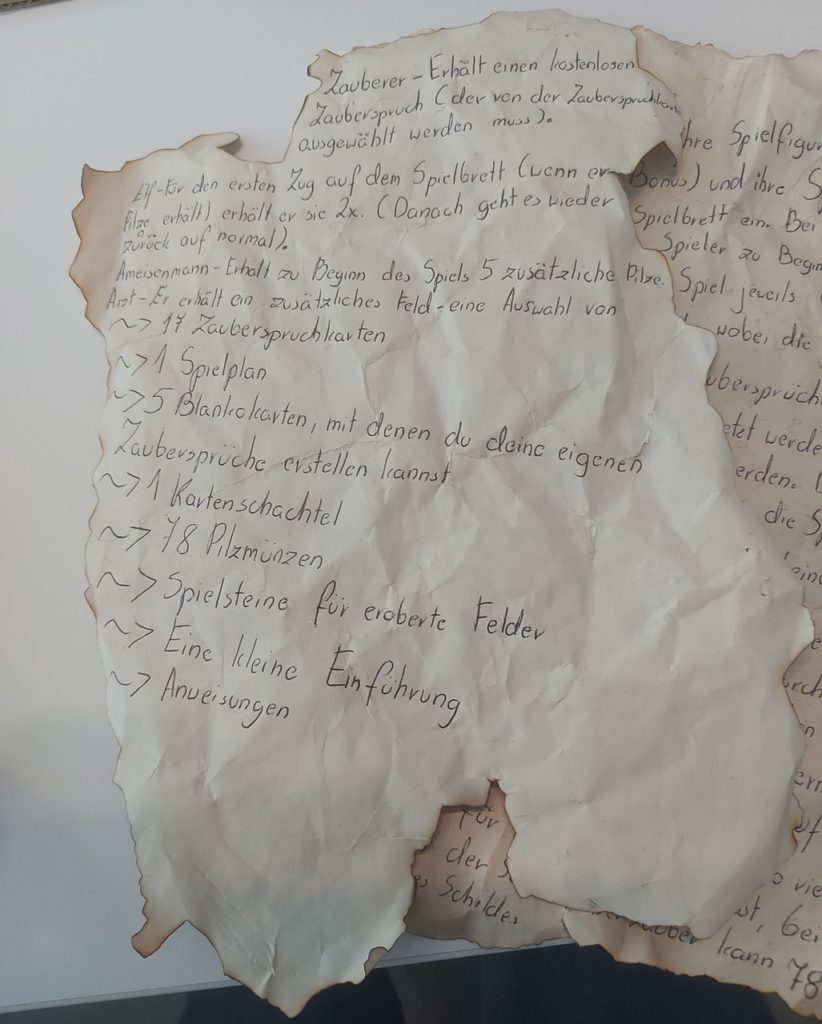 Zauberer - Erhält einen kostenlosen
Zauberspruch (der von der Zauberspruchbank
ausgewählt werden muss).
Elf-Für den ersten Zug auf dem Spielbrett (wenn er
Pilze erhält) erhält er sie 2x. (Danach geht es wieder
zurück auf normal).
Ameisenmann-Erhält zu Beginn des Spiels 5 zusätzliche Pilze.
Arzt-Er erhält ein zusätzliches Feld-eine Auswahl von
~> 17 Zauberspruchkarten
~> 1 Spielplan
~> 5 Blankokarten, mit denen du deine eigenen
Zaubersprüche erstellen kannst
~> 1 Kartenschachtel
~> 78 Pilzmünzen
~> Spielsteine für eroberte Felder
~> Eine kleine Einführung
~> Anweisungen
hre Spielfigur
Bonus) und ihre S
Spielbrett ein. Bei
Spieler zu Beginn
Spiel jeweils
wobei die
ubersprüch
etzt werde
erden.
die Sp
eine
rch
ern
o vie
st, bei
zauber kann 78
für
der S
es Schildes